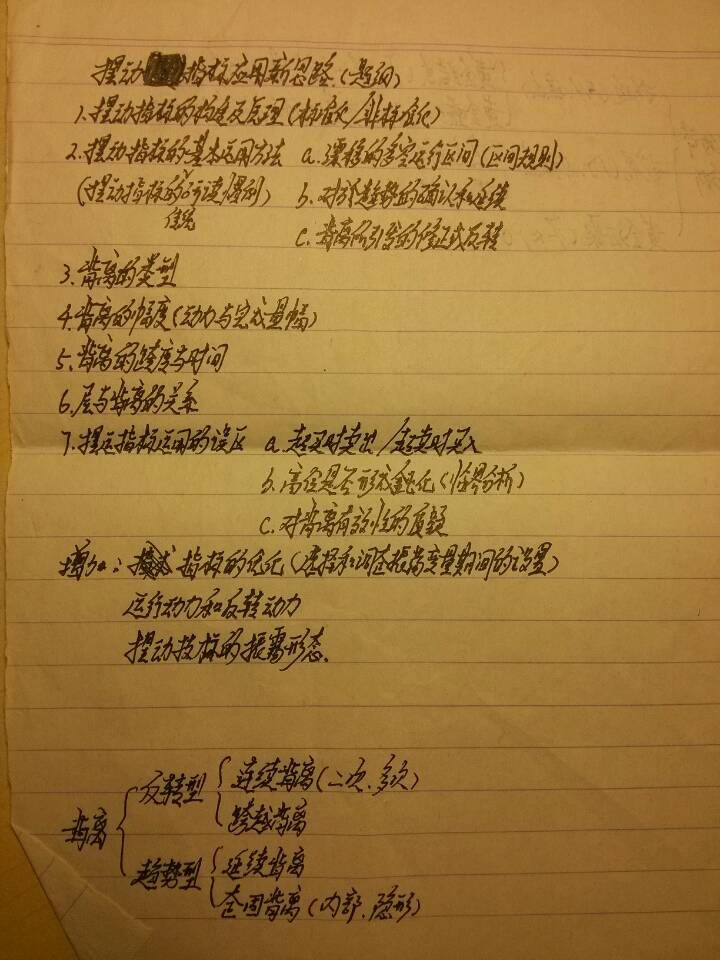 摆动指标应用新思路(题纲)
1.摆动指标的构建及原理(标准化/非标准化)
2.摆动指标的基本运用方法 a.漂移的多空运行区间(区间规则)
(摆动指标的解读惯例) b.对于趋势的确认和延续
传统 c.背离所引发的修正或反转
3.背离的类型
4.背离的幅度(动力与完成量幅)
5.背离的跨度与时间
6.层与背离的关系
7.摆动指标运用的误区 a.超买时卖出/超卖时买入
b.高位是否形成钝化(临界分析)
c.对背离有效性的质疑
增加: 指标的优化(选择和调整振荡变量期间的设置)
运行动力和反转动力
摆动指标的振荡形态.
背离
反转型 连续背离(二次.多次)
跨越背离
趋势型 延续背离
背离(内部.隐形)